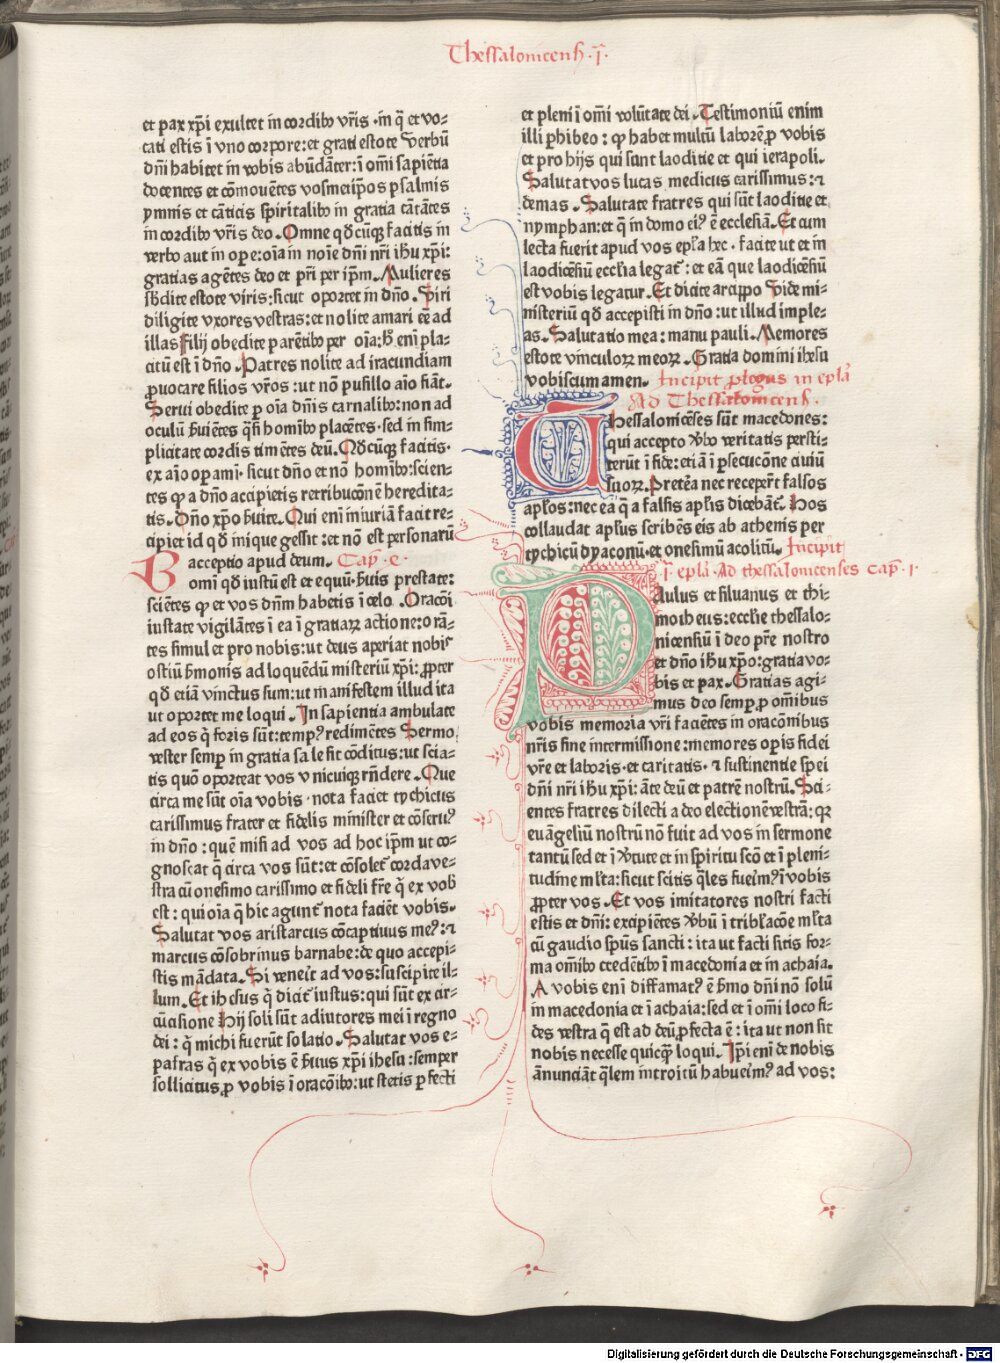 Thessalonicens̄ .j.
et pax xp̄i exultet in cordibꝰ vr̄is · in q̄ et vo⸗
cati estis ī vno corpore: et grati estote Verbū
dn̄i habitet in vobis abūdāter: ī om̄i sapiētia
docentes et cōmouētes vosmetip̄os psalmis
ymnis et cāticis sp̄iritalibꝰ in gratia cātātes
in cordibꝰ vr̄is deo . Omne qd̄cūqꝫ facitis in
verbo aut in ope: oīa in noīe dn̄i nr̄i ihū xp̄i:
gratias agētes deo et pr̄i per ip̄m . Mulieres
sb̄dite estote viris: sicut oportet in dn̄o . Viri
diligite vxores vestras: et nolite amari eē ad
illas Filij obedite parētibꝰ per oīa: h̄ enī pla⸗
citū est ī dn̄o . Patres nolite ad iracundiam
ꝓuocare filios vr̄os: ut nō pusillo aīo fiāt .
Serui obedite ꝑ oīa dn̄is carnalibꝰ: non ad
oculū ẜuiētes q̄si hominibꝰ placētes · sed in sim⸗
plicitate cordis timētes deū . Qd̄cūqꝫ facitis ·
ex aīo opami · sicut dn̄o et nō hominibꝰ: scien⸗
tes ꝙ a dn̄o accipietis retribucōnē heredita⸗
tis . Dn̄o xp̄o ẜuite . Qui enī iniuriā facit re⸗
cipiet id qd̄ inique gessit: et nō est personarū
acceptio apud deum . Cap . 4 .
Domī qd̄ iustū est et equū · ẜuis prestate:
sciētes ꝙ et vos dn̄m habetis ī celo . Oracōi
instate vigilātes ī ea ī gratiaꝝ actione: orā⸗
tes simul et pro nobis: ut deus aperiat nobis
ostiū ẜmonis ad loquēdū misteriū xp̄i: ꝓpter
qd̄ etiā vinctus sum: ut manifestem illud ita
ut oportet me loqui . In sapientia ambulate
ad eos q̄ foris sūt: tempꝰ redimētes Sermo
vester semꝑ in gratia sale sit cōditus: ut scia⸗
tis quō oporteat vos vnicuiqꝫ rn̄dere . Que
circa me sūt oīa vobis · nota faciet tychicus
carissimus frater et fidelis minister et cōseruꝰ
in dn̄o: quē misi ad vos ad hoc ip̄m ut co⸗
gnoscat q̄ circa vos sūt: et cōsolet̄ corda ve⸗
stra cū onesimo carissimo et fideli fr̄e q̄ ex vob̄
est: qui oīa q̄ hic agunt̄ nota faciēt vobis .
Salutat vos aristarcus cōcaptiuus meꝰ: ⁊
marcus cōsobrinus barnabe: de quo accepi⸗
stis mādata . Si veneīt ad vos: suscipite il⸗
lum . Et ihesus q̄ dicit̄ iustus: qui sūt ex cir⸗
cūcisione Hij soli sūt adiutores mei ī regno
dei: q̄ michi fuerūt solatio . Salutat vos e⸗
pafras q̄ ex vobis ē ẜuus xp̄i ihesu: semper
sollicitus ꝓ vobis ī oracōibꝰ: ut stetis ꝑfecti
et pleni ī om̄i volūtate dei . Testimoniū enim
illi ꝑhibeo: ꝙ habet multū laborē ꝓ vobis
et pro hijs qui sunt laoditie et qui ierapoli .
Salutat vos lucas medicus carissimus: ⁊
demas . Salutate fratres qui sūt laoditie et
nymphan: et q̄ in domo eiꝰ ē ecclesiā . Et cum
lecta fuerit apud vos epl̄a hec · facite ut et in
laodicēsiū eccl̄ia legat̄: et eā que laodicēsiū
est vobis legatur . Et dicite arcippo Vide mi⸗
nisteriū qd̄ accepisti in dn̄o: ut illud imple⸗
as . Salutatio mea: manu pauli . Memores
estote vinculoꝝ meoꝝ . Gratia domini ihesu
vobiscum amen . Incipit ꝓlogus in epl̄ā
Ad Thessalonicens̄ .
Thessalonicēses sūt macedones:
qui accepto ꝟbo veritatis persti⸗
terūt ī fide: etiā ī ꝑsecucōne ciuiū
suoꝝ . Preteā nec recepert̄ falsos
apl̄os: nec ea q̄ a falsis apl̄is dicebāt̄ . Hos
collaudat apl̄us scribēs eis ab athenis per
tychicū dyaconū · et onesimū acolitū . Incipit
j̄ epl̄a . Ad thessalonicenses cap . j .
Paulus et siluanus et thi⸗
motheus: eccl̄ie thessalo⸗
nicensiū ī deo pr̄e nostro
et dn̄o ihū xp̄o: gratia vo⸗
bis et pax . Gratias agi⸗
mus deo semꝑ ꝓ om̄ibus
vobis memoria vr̄i faciētes in oracōnibus
nr̄is sine intermissione: memores opis fidei
vr̄e et laboris · et caritatis · ⁊ sustinentie spei
dn̄i nr̄i ihū xp̄i: āte deū et patrē nostrū . Sci⸗
entes fratres dilecti a deo electionē vestrā: qꝛ
euāgeliū nostrū nō fuit ad vos in sermone
tantū sed et ī ꝟtute et in spiritu scō et ī pleni⸗
tudine ml̄ta: sicut scitis q̄les fueīmꝰ ī vobis
ꝓpter vos . Et vos imitatores nostri facti
estis et dn̄i: excipiētes ꝟbū ī tribl̄acōe ml̄ta
cū gaudio sp̄us sancti: ita ut facti sitis for⸗
ma om̄ibꝰ credētibꝰ ī macedonia et in achaia .
A vobis enī diffamatꝰ ē ẜmo dn̄i nō solū
in macedonia et ī achaia: sed et ī om̄i loco fi⸗
des vestra q̄ est ad deū ꝓfecta ē: ita ut non sit
nobis necesse quicqꝫ loqui . Ip̄i enī de nobis
ānunciāt q̄lem introitū habueīmꝰ ad vos:
Digitalisierung gefördert durch die Deutsche Forschungsgemeinschaft - DFG